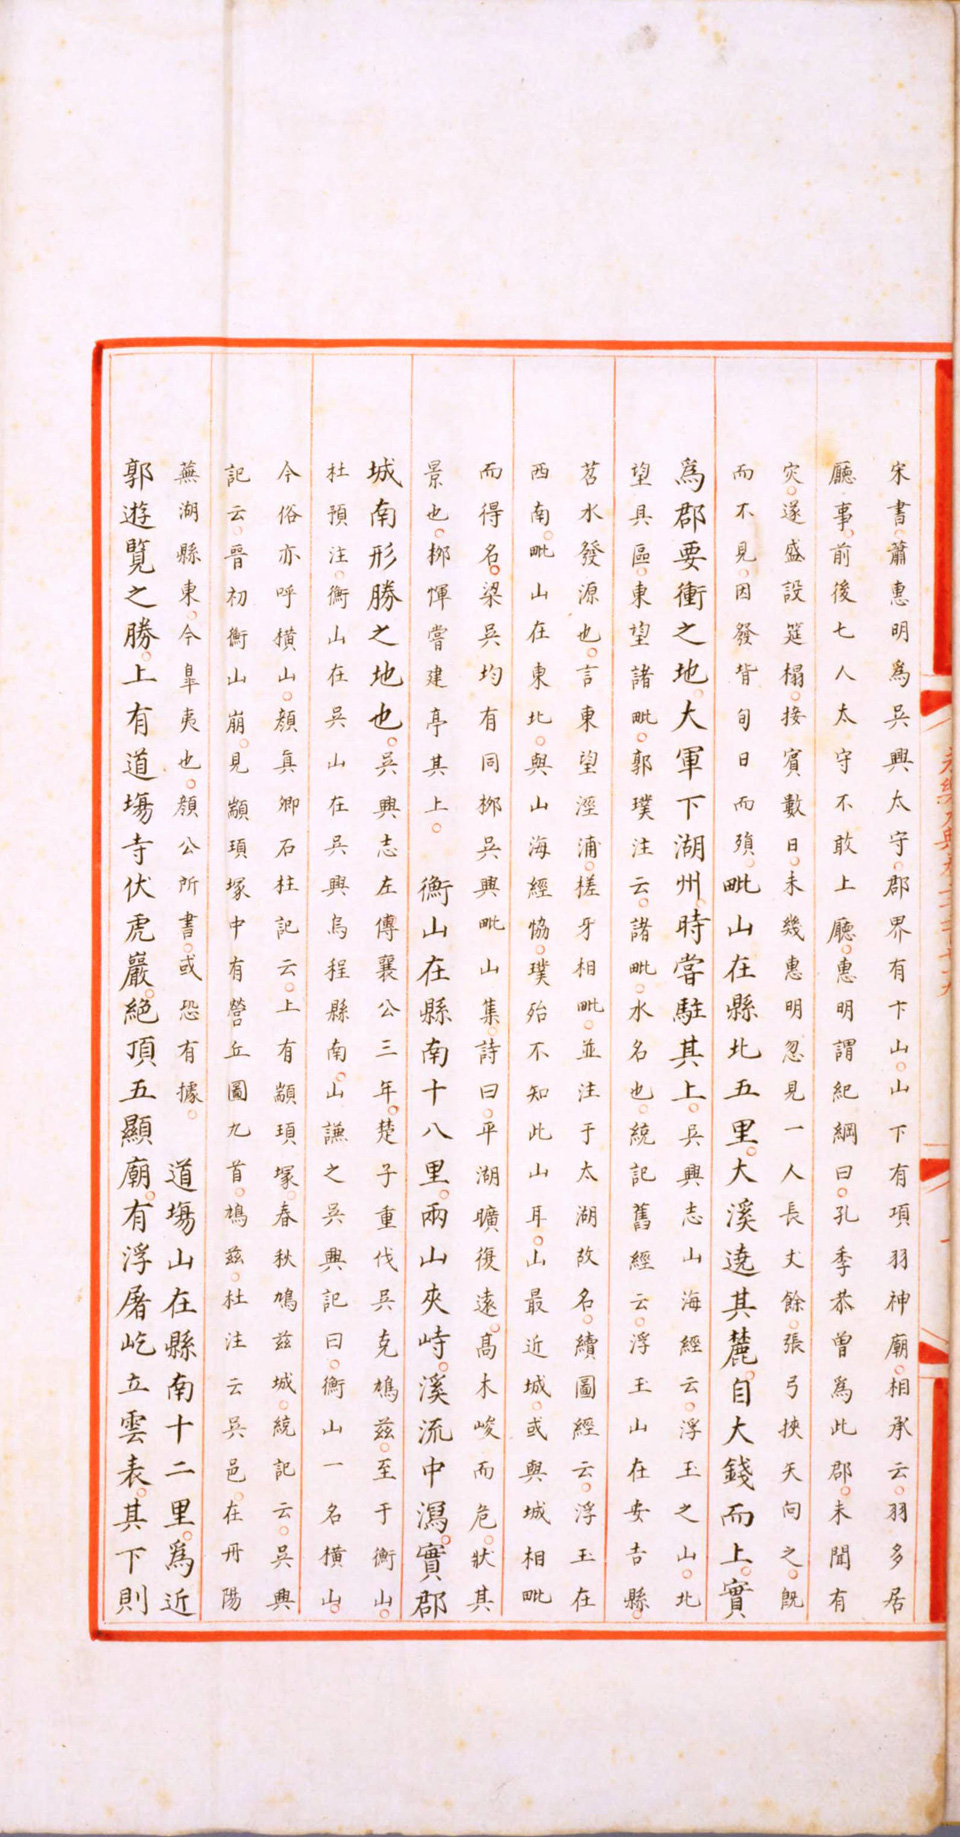 宋書蕭惠明為吳興太守郡界有卞山山下有項羽神廟相承云羽多居
廳事前後七人太守不敢上廳惠明謂紀綱曰孔季恭曾為此郡未聞有
灾遂盛設筵榻接賓數日未幾惠明忽見一人長丈餘張弓挾矢向之既
而不見因發背旬日而殞毗山在縣北五里大溪遶其麓自大錢而上實
為郡要衝之地大軍下湖州時嘗駐其上吳興志山海經云浮玉之山北
望具區東望諸毗郭璞注云諸毗水名也統記舊經云浮玉山在安吉縣
苕水發源也言東望涇浦槎牙相毗並注于太湖故名續圖經云浮玉在
西南毗山在東北與山海經恊璞殆不知此山耳山最近城或與城相毗
而得名梁吳均有同栁吳興毗山集詩曰平湖曠復遠高木峻而危狀其
景也栁惲嘗建亭其上 衡山在縣南十八里兩山夾峙溪流中瀉實郡
城南形勝之地也吳興志左傳襄公三年楚子重伐吳克鳩茲至于衡山
杜預注衡山在吳山在吳興烏程縣南山謙之吳興記曰衡山一名橫山
今俗亦呼橫山顏真卿石柱記云上有顓頊塚春秋鳩茲城統記云吳興
記云晉初衡山崩見顓頊塚中有營丘圖九首鳩茲杜注云吳邑在丹陽
蕪湖縣東今臯夷也顏公所書或恐有據 道塲山在縣南十二里為近
郭遊覽之勝上有道塲寺伏虎巖絕頂五顯廟有浮屠屹立雲表其下則